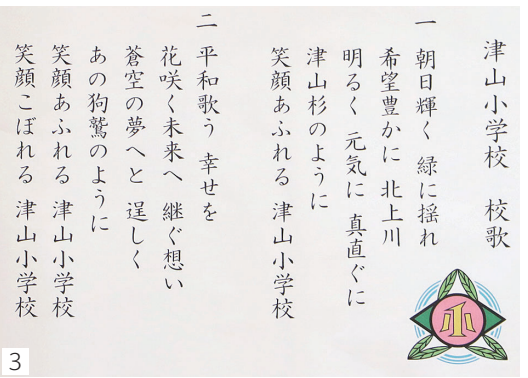 津山小学校 校歌
一 朝日輝く 緑に揺れ
希望豊かに 北上川
明るく 元気に 真直ぐに
津山杉のように
笑顔あふれる 津山小学校
二 平和歌う 幸せを
花咲く未来へ 継ぐ想い
蒼空の夢へと 逞しく
あの狗鷲のように
笑顔あふれる 津山小学校
笑顔こぼれる 津山小学校
小
3